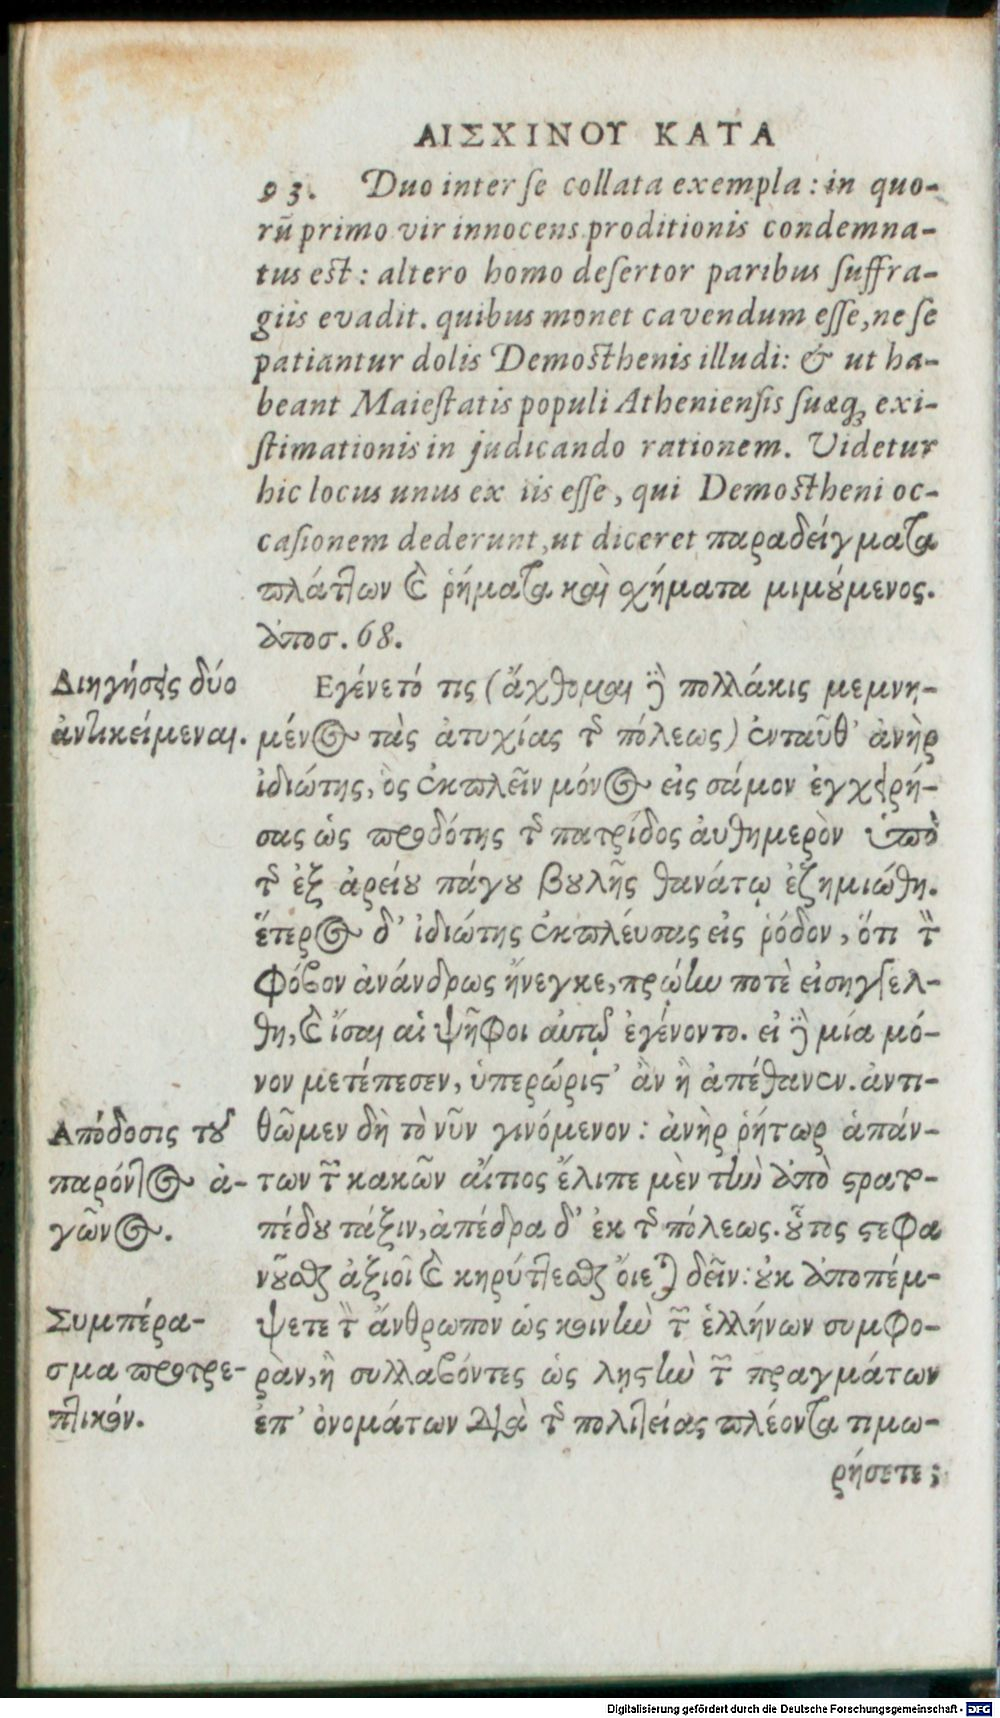 ΑΙΣΧΙΝΟΥ ΚΑΤΑ
93. Duo inter se collata exempla: in quo-
rū primo vir innocens proditionis condemna-
tus est: altero homo desertor paribus suffra-
giis evadit. quibus monet cavendum esse, ne se
patiantur dolis Demosthenis illudi: & ut ha-
beant Maiestatis populi Atheniensis suæq; exi-
stimationis in judicando rationem. Videtur
hic locus unus ex iis esse, qui Demostheni oc-
casionem dederunt, ut diceret παραδείγματα
πλάττων καὶ ῥήματα καὶ σχήματα μιμούμενος.
ἀποσ. 68.
Διηγήσεις δύο
ἀντικείμεναι.
Εγένετό τις (ἄχθομαι γὸ πολλάκις μεμνη-
μένος τὰς ἀτυχίας τῆς πόλεως) ἐνταῦθ' ἀνὴρ
ἰδιώτης, ὃς ἐκπλεῖν μόνος εἰς σάμον ἐγχειρή-
σας ὡς προδότης τῆς πατρίδος αὐθημερὸν ὑπὸ
τῆς ἐξ ἀρείου πάγου βουλῆς θανάτῳ ἐζημιώθη.
ἕτερος δ' ἰδιώτης ἐκπλεύσας εἰς ῥόδον, ὅτι τὸν
φόβον ἀνάνδρως ἤνεγκε, πρώην ποτὲ εἰσηγγελ-
θη, καὶ ἴσαι αἱ ψῆφοι αὐτῷ ἐγένοντο. εἰ γὸ μία μό-
νον μετέπεσεν, ὑπερώριστ' ἂν ἢ ἀπέθανεν. ἀντι-
θῶμεν δὴ τὸ νῦν γινόμενον: ἀνὴρ ῥήτωρ ἁπάν-
των τῶν κακῶν αἴτιος ἔλιπε μὲν τὴν ἀπὸ στρατο-
πέδου τάξιν, ἀπέδρα δ' ἐκ τῆς πόλεως. οὗτος στεφα
νοῦσθαι ἀξιοῖ καὶ κηρύττεσθαι οἴεται δεῖν: οὐκ ἀποπέμ-
ψετε τὸν ἄνθρωπον ὡς κοινὴν τῶν ἑλλήνων συμφο-
ρὰν, ἢ συλλαβόντες ὡς λῃστὴν τῶν πραγμάτων
ἐπ' ὀνομάτων διὰ τῆς πολιτείας πλέοντα τιμω-
ρήσετε;
Απόδοσις τοῦ
παρόντος ἀ-
γῶνος.
Συμπέρα-
σμα προτρε-
πτικόν.
Digitalisierung gefördert durch die Deutsche Forschungsgemeinschaft - DFG